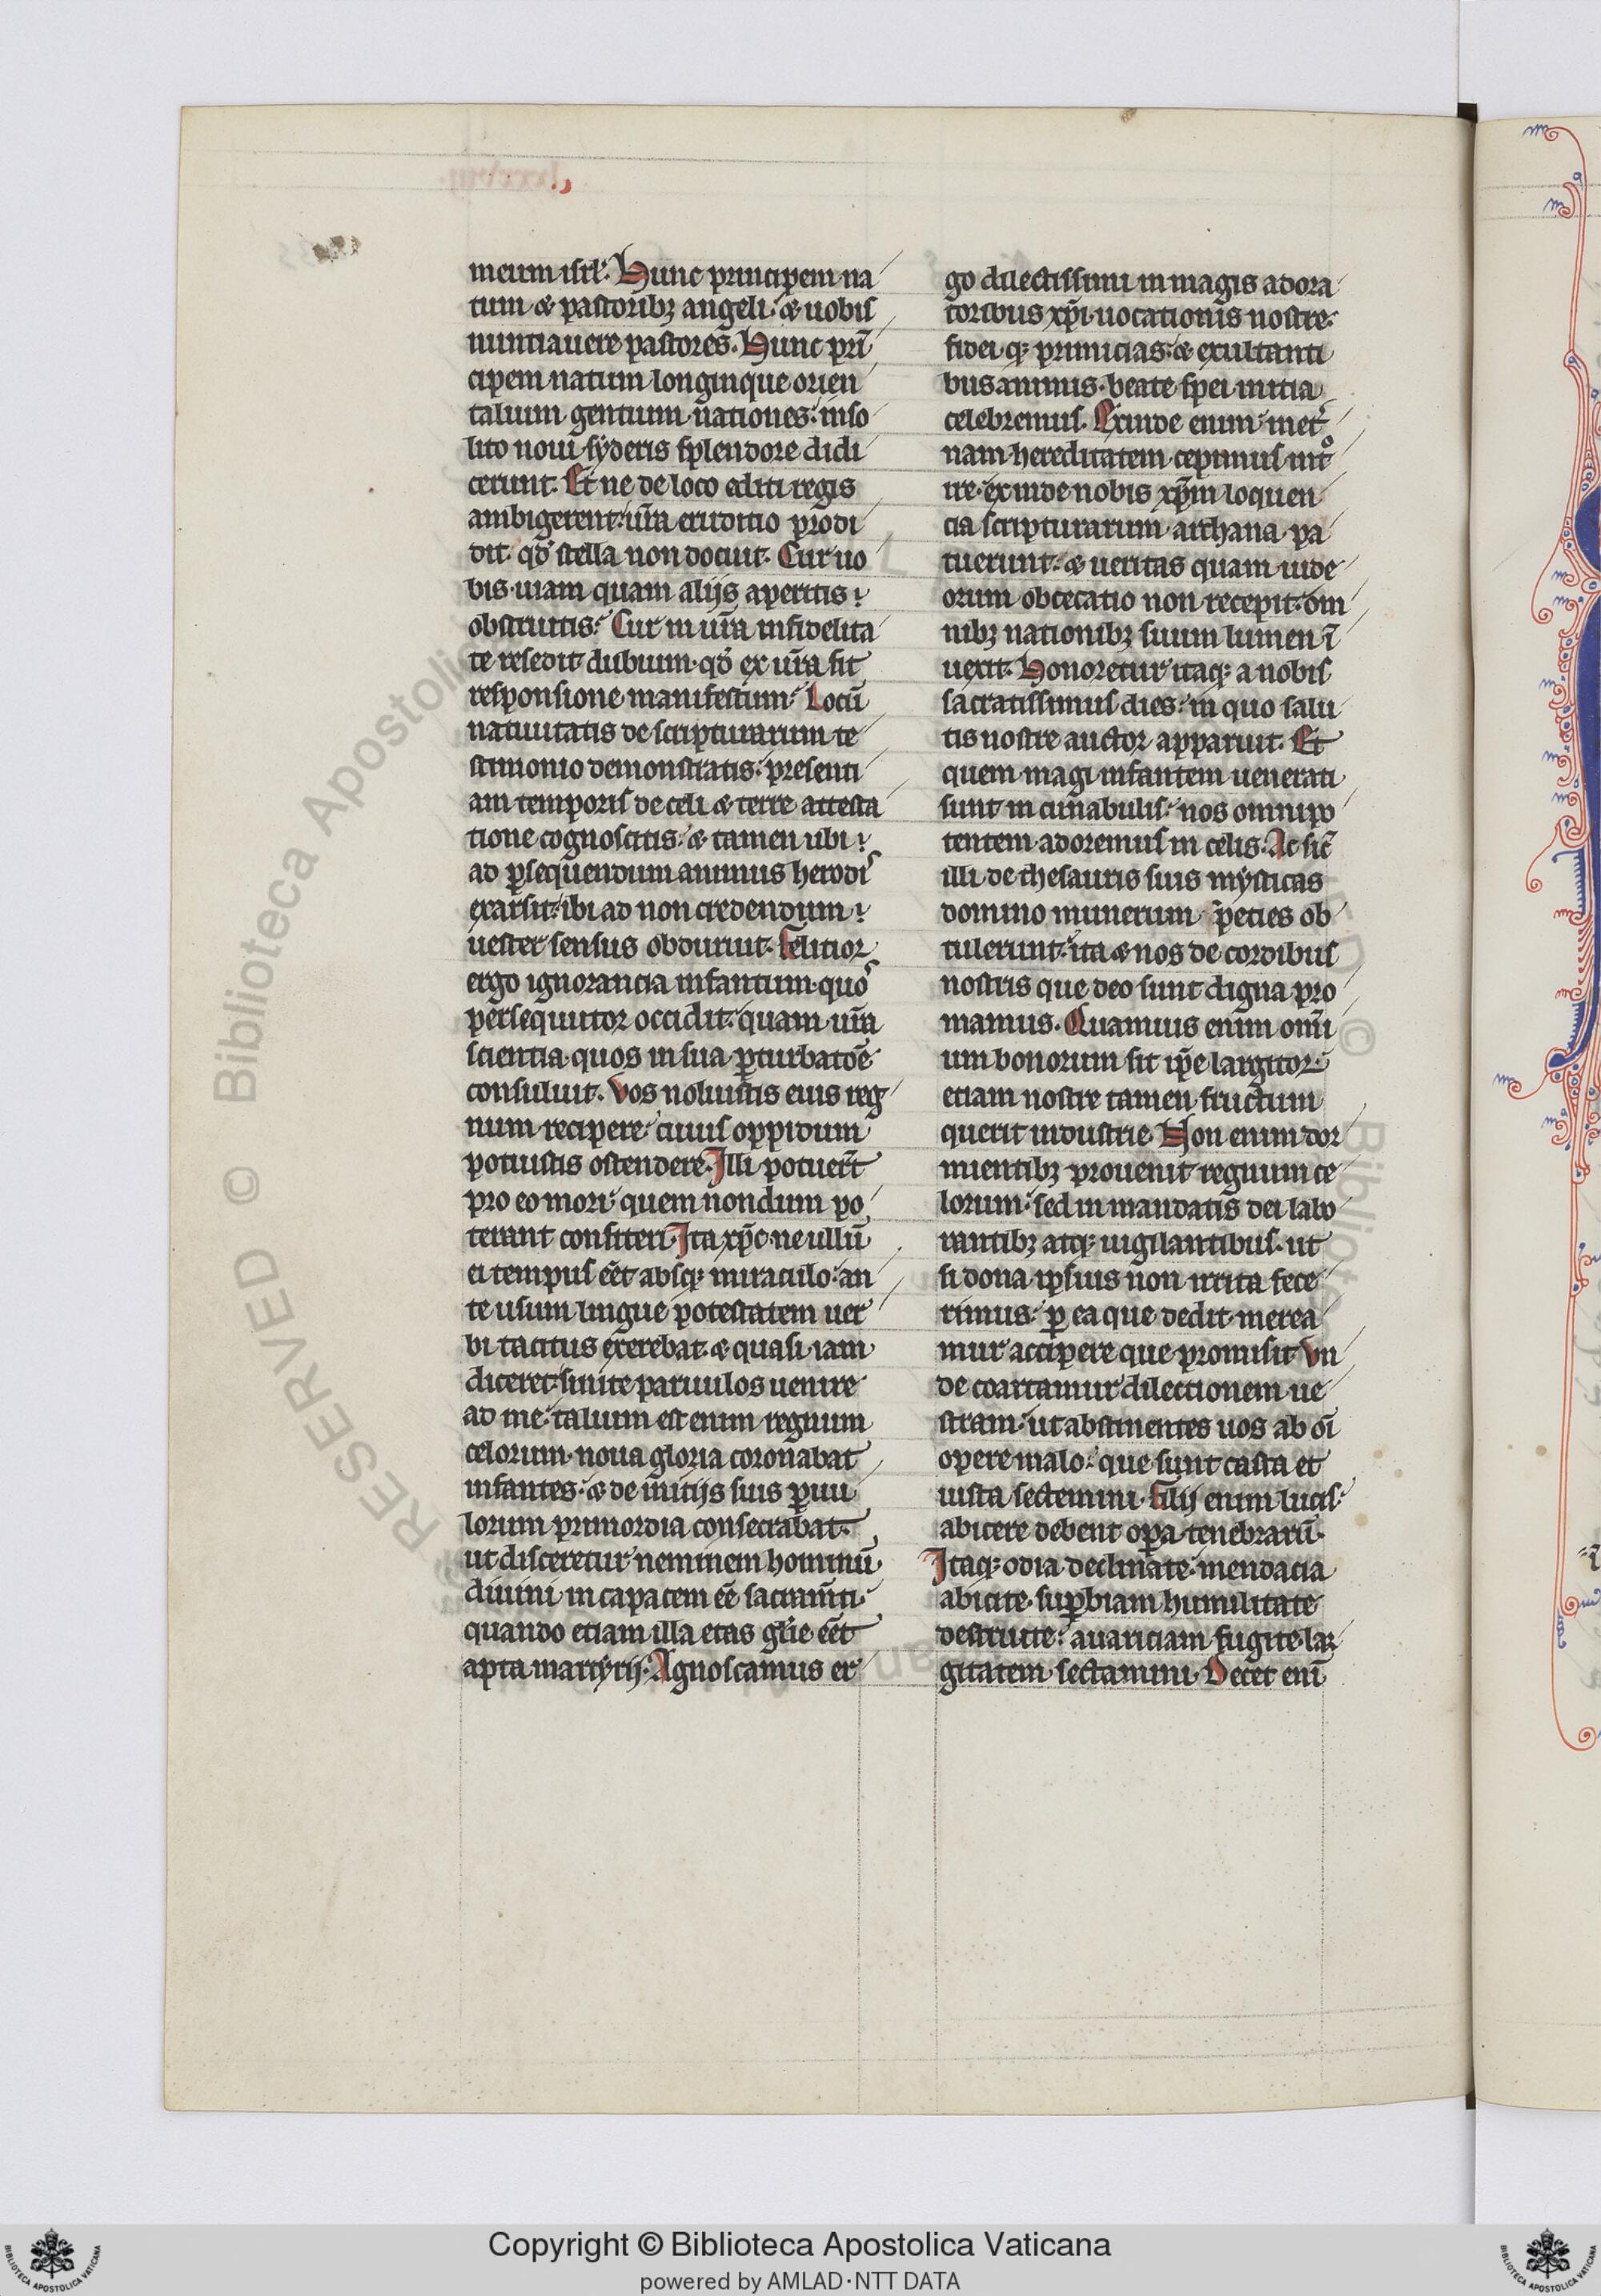 meum isrl'. Hunc principem na
tum & pastoribꝫ angeli. & uobis
nuntiauere pastores. Hunc pri̅
cipem natum longinque orien
talium gentium nationes. inso
lito noui syderis splendore didi
cerunt. Et ne de loco editi regis
ambigerent. ur̅a eruditio prodi
dit qd̕ stella non docuit. Cur uo
bis uiam quam alijs aperitis.
obstruitis. Cur in ur̅a infidelita
te resedit dubium. qd̕ ex ur̅a fit
responsione manifestum. Locu̅
natiuitatis de scripturarum te
stimonio demonstratis. presenti
am temporis de celi & terre attesta
tione cognoscitis. & tamen ubi
ad ꝑsequendum animus herodis
exarsit. ibi ad non credendum
uester sensus obduruit. felicior
ergo ignorancia infantum. quos
persequutor occidit. quam ur̅a
scientia quos in sua ꝑturbato̅e
consuluit. Vos noluistis eius reg
num recipere. cuius oppidum
potuistis ostendere. Illi potuer̅t
pro eo mori. quem nondum po
terant confiteri. Ita xp̅c ne ullu̅
ei tempus ee̅t absqꝫ miraculo. an
te usum lingue potestatem uer
bi tacitus exerebat. & quasi iam
diceret. sinite paruulos uenire
ad me. talium est enim regnum
celorum. noua gloria coronabat
infantes. & de initijs suis ꝑuu
lorum primordia consecrabat.
ut disceretur neminem hominu̅
diuini incapacem ee̅ sacram̅ti.
quando etiam illa etas gl'ie ee̅t
apta martyrij. Agnoscamus er
go dilectissimi in magis adora
toribus xp̅i. uocationis nostre.
fidei qꝫ primicias. & exultanti
bus animis. beate spei initia
celebremus. Exinde enim in et̕
nam hereditatem cepimus int°
ire. exinde nobis xp̅m loquen
cia scripturarum archana pa
tuerunt. & ueritas quam iude
orum obcecatio non recepit. om
nibꝫ nationibꝫ suum lumen i̅
uexit. Honoretur itaqꝫ a nobis
sacratissimus dies. in quo salu
tis nostre auctor apparuit. Et
quem magi infantem uenerati
sunt in cunabulis. nos omnipo
tentem adoremus in celis. Ac sic̅
illi de thesauris suis mysticas
domino munerum species ob
tulerunt. ita & nos de cordibus
nostris que deo sunt digna pro
mamus. Quamuis enim omi̅
um bonorum sit ip̅e largitor.
etiam nostre tamen fructum
querit industrie. Non enim dor
mientibꝫ prouenit regnum ce
lorum. sed in mandatis dei labo
rantibꝫ atqꝫ uigilantibus. ut
si dona ipsius non irrita fece
rimus. ꝑ ea que dedit. merea
mur accipere que promisit. Vn
de coartamur dilectionem ue
stram. ut abstinentes uos ab oi̅
opere malo. que sunt casta et
iusta sectemini. filij enim lucis.
abicere debent opa̅ tenebraru̅.
Itaqꝫ odia declinate. mendacia
abicite. suꝑbiam humilitate
destruite. auariciam fugite. lar
gitatem sectamini. Decet eni̅
RESERVED © Biblioteca Apostolic
© Bibliote
Copyright © Biblioteca Apostolica Vaticana
powered by AMLAD·NTT DATA
BIBLIOTECA APOSTOLICA VATICANA
BIBLIOTECA APOSTOLICA VATICANA